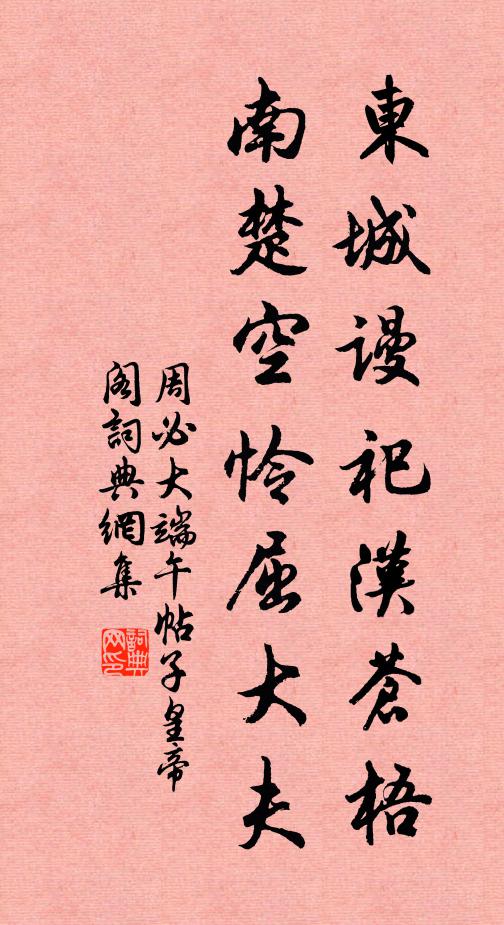 東城謾祀漢蒼梧
南楚空怜屈大夫
周必大端午帖子皇帝
閣詞典網集
詞典網印